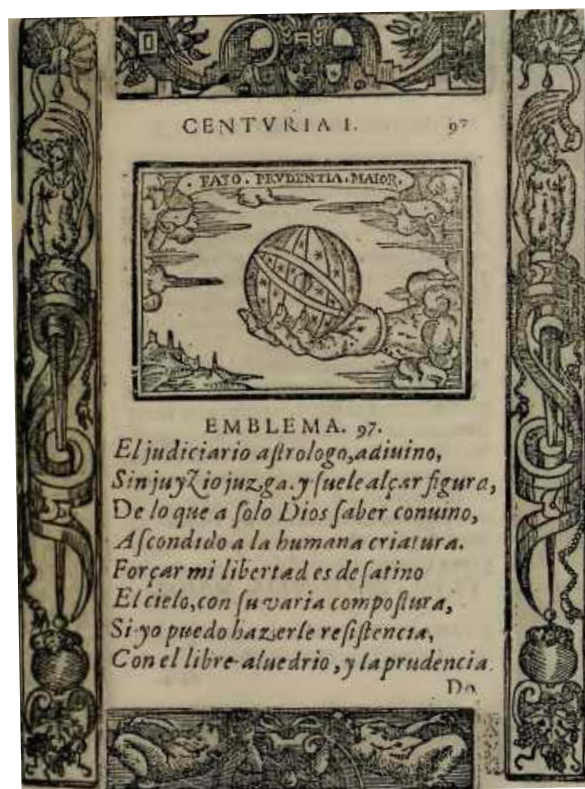 CENTVRIA I. 97
FATO. PRVDENTIA. MAIOR.
EMBLEMA. 97.
El judiciario aſtrologo, adiuino,
Sin juyzio juzga. y ſuele alçar figura,
De lo que a ſolo Dios ſaber conuino,
Aſcondido a la humana criatura.
Forçar mi libertad es deſatino
El cielo, con ſu varia compoſtura,
Si yo puedo hazerle reſiſtencia,
Con el libre aluedrio, y la prudencia.
Do